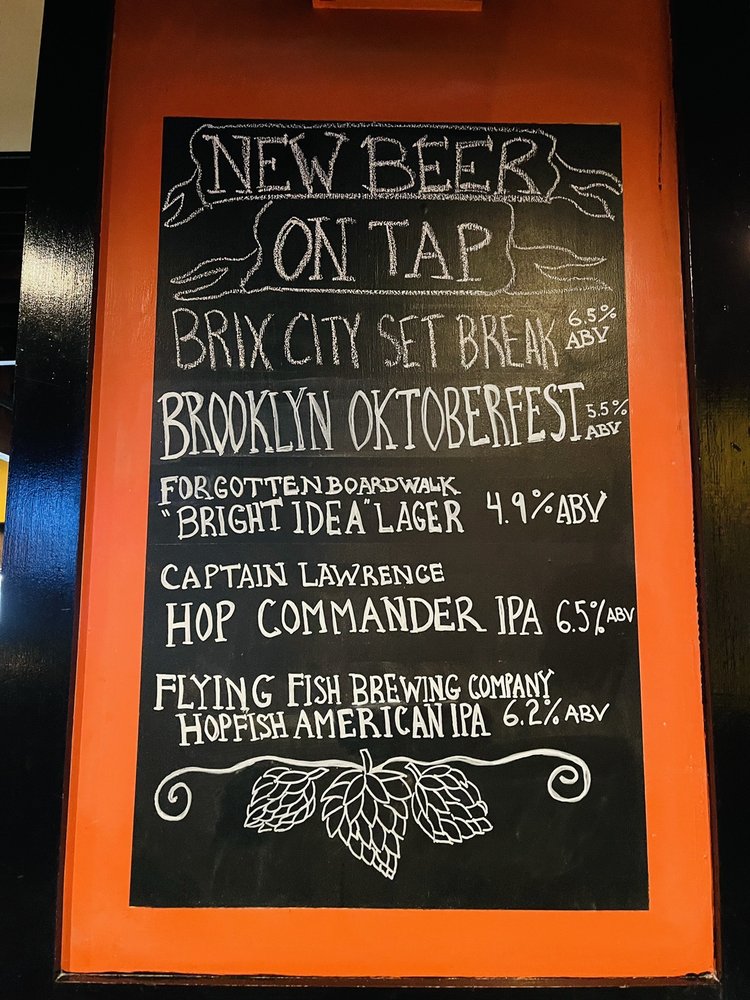 NEW BEER
ON TAP
BRIX CITY SET BREAK 6.5% ABV
BROOKLYN OKTOBERFEST 5.5% ABV
FORGOTTEN BOARDWALK
"BRIGHT IDEA" LAGER 4.9% ABV
CAPTAIN LAWRENCE
HOP COMMANDER IPA 6.5% ABV
FLYING FISH BREWING COMPANY
HOPFISH AMERICAN IPA 6.2% ABV